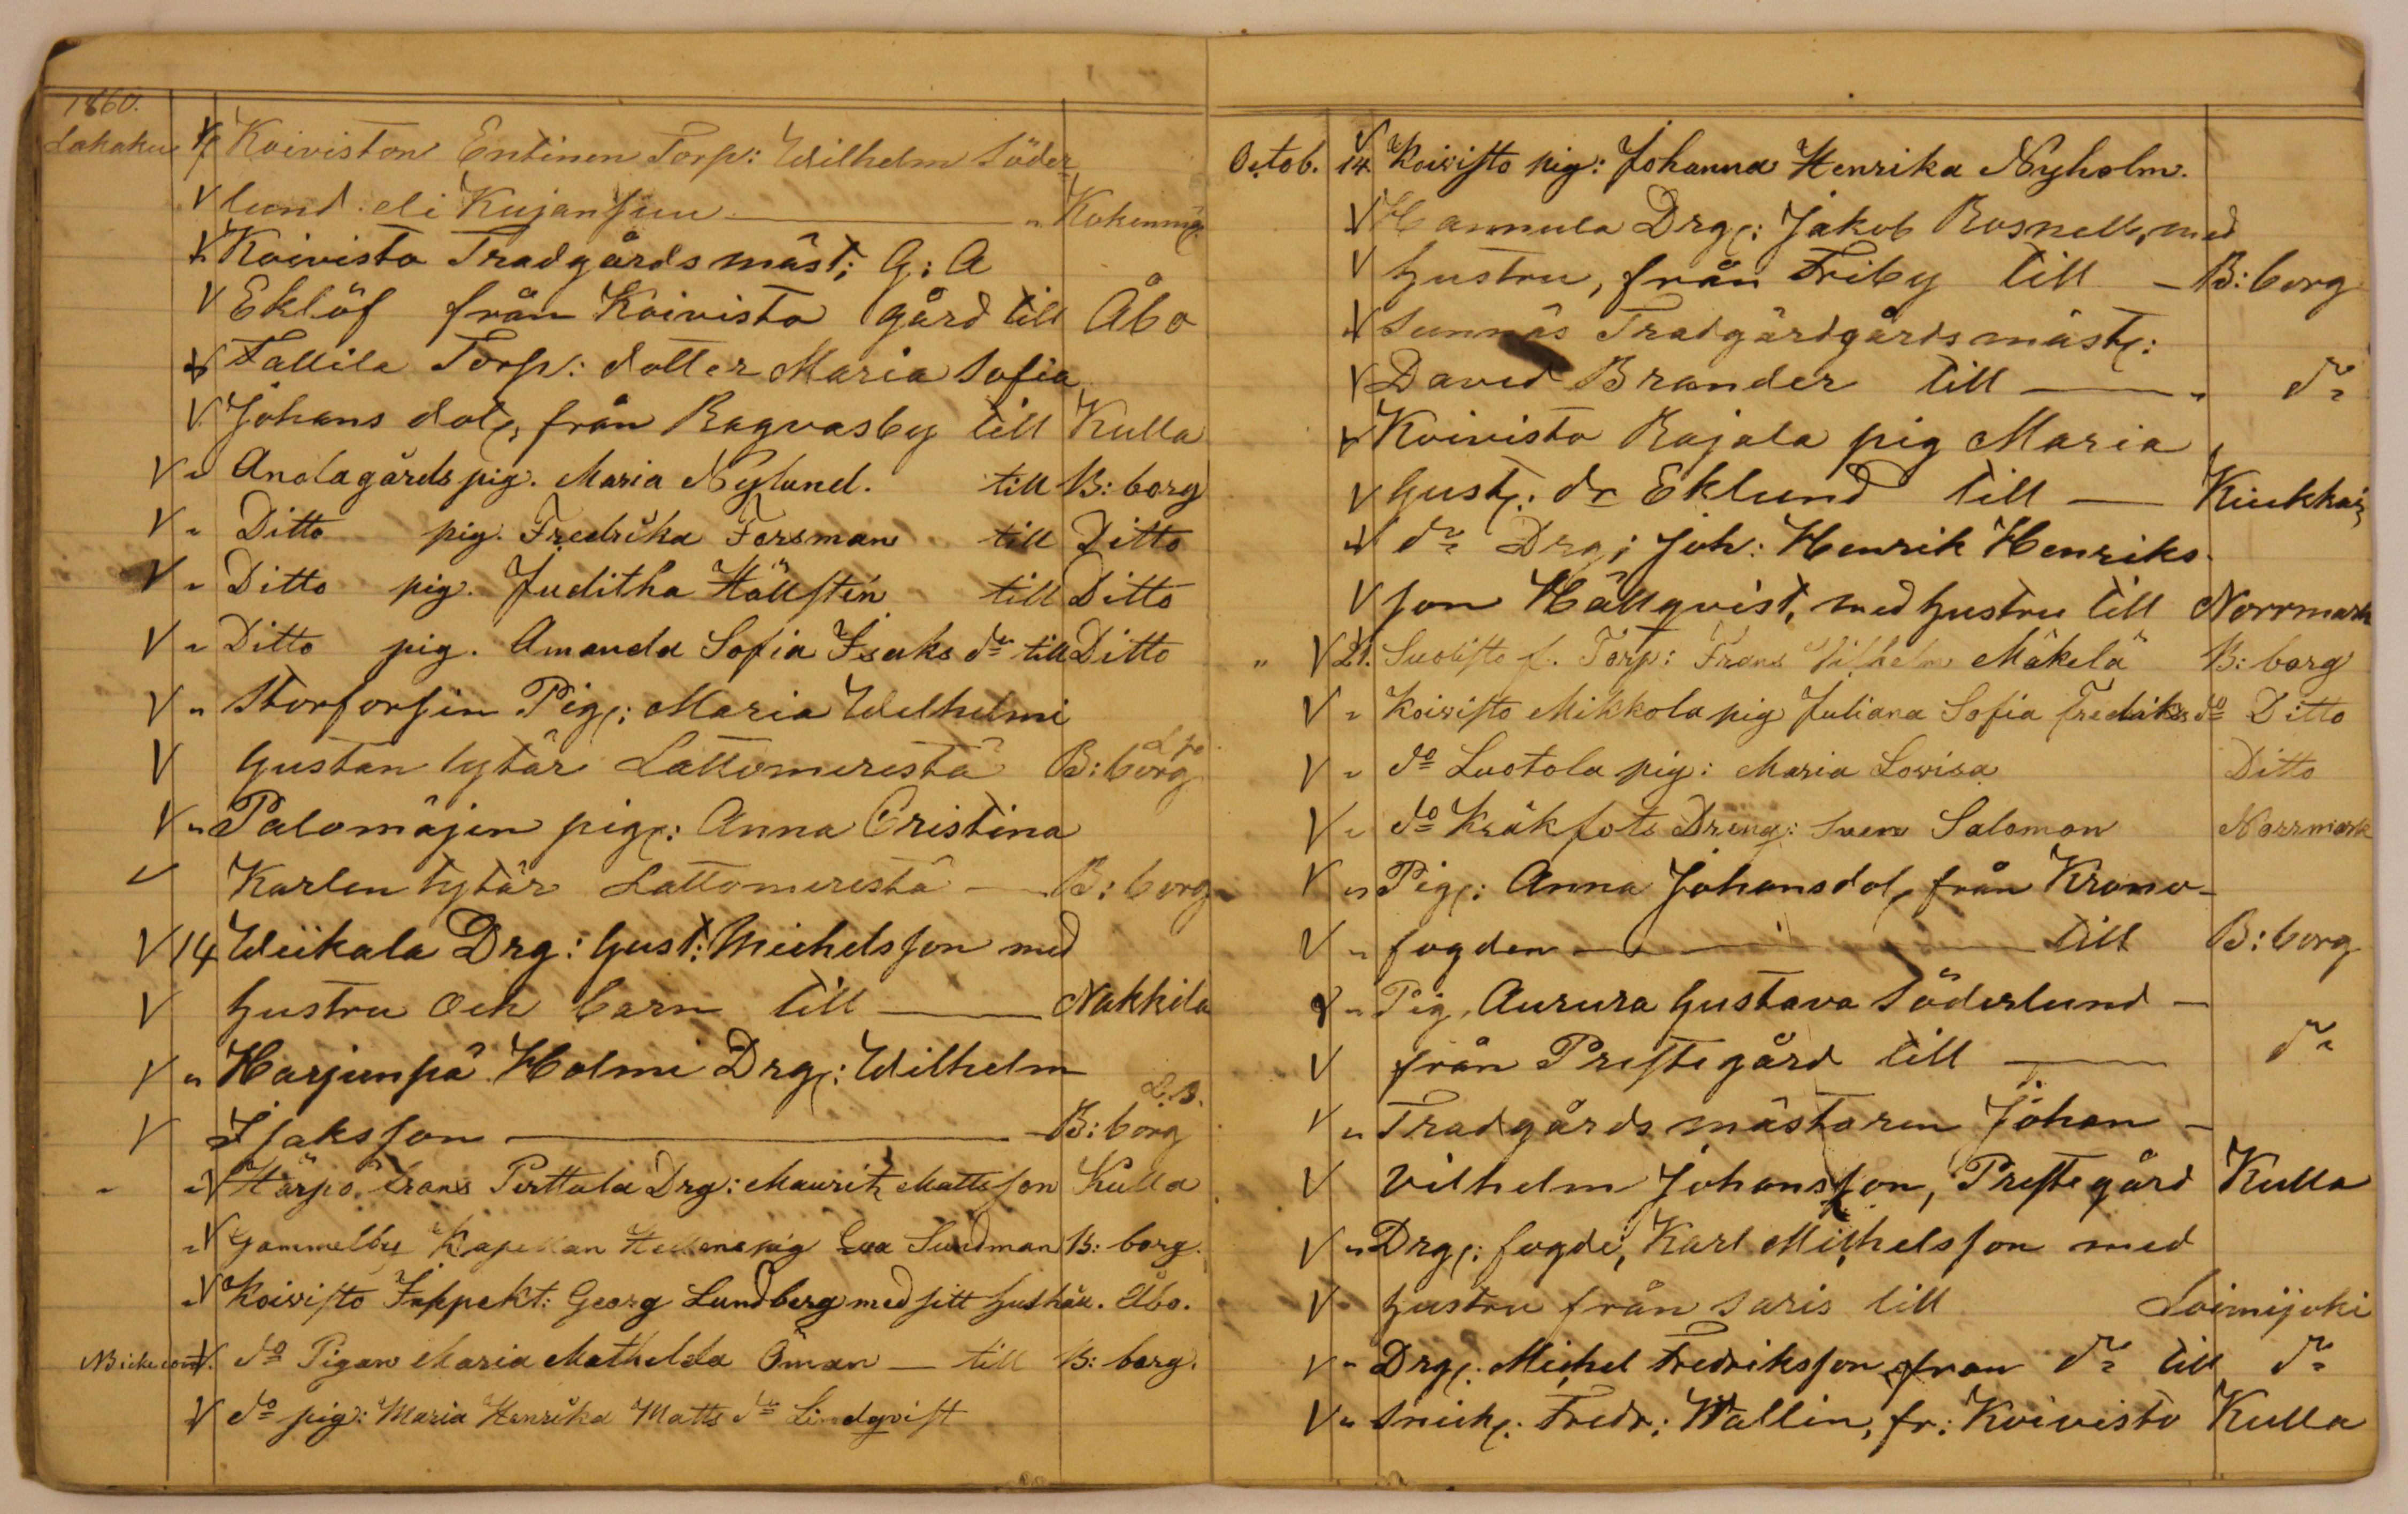 1860.
Lokakuu 7 Koiviston Entinen Torp: Wilhelm Söder-
lund eli Kujansuu — „ Kokemäg:
„ Koivisto Tradgårdsmäst; G: A
Eklöf från Koivisto gård till Åbo
„ Tallila Torp: dotter Maria Sofia
Johans dotr, från Ragvasby till Kulla
„ Anolagårds pig. Maria Nylund. till B: borg
„ Ditto pig. Fredrika Forsman till Ditto
„ Ditto pig. Juditha Hällstén till Ditto
„ Ditto pig. Amanda Sofia Isaks dr till Ditto
„ Storforsin Pigr: Maria Wilhelmi
Gustan tytär Lattomerestä B: borg
„ Palomäjen pigr: Anna Cristina
Karlen tytär Lattomerestä — B: borg
14 Wiikala Drg: Gust: Michelsson med
hustru och barn till — Nakkila
„ Harjunpä Holmi Drgr: Wilhelm
Isaksson — B: borg
„ Härpö, Frans Perttula Drg: Mauritz Mattsson Kulla
„ Gammelby Kapellan pig Eva Sundman B: borg.
„ Koivisto Inspekt: Georg Lundberg med sitt hushåll. Åbo.
„ do Pigan Maria Mathelda Öman — till B: borg.
„ do pig: Maria Henrika Matts dr Lindqvist
Octob. 14 Koivisto pig: Johanna Henrika Nyholm.
„ Hannula Drgr: Jakob Rosnell, med
hustru, från Friby till — B: borg
„ Sunnäs Tradgårdgårdsmästr:
David Brander till — „ do
„ Koivisto Rajala pig Maria
Gustr: dr Eklund till — Kiukkais
„ do Drg; Joh: Henrik Henriks-
son Hällqvist, med hustru till Norrmark
„ 21. Suolisto f. Torp: Frans Vilhelm Mäkelä B: borg
„ Koivisto Mikkola pig Juliana Sofia Fredriks do Ditto
„ do Luotola pig: Maria Lovisa Ditto
„ do Kråkfots Dreng: Sven Salomon Norrmark
„ Pigr: Anna Johansdotr från Krono-
„ fogden — till B: borg
„ Pig, Aurura Gustava Söderlund —
från Prestegård till — do
„ Tradgårdsmästaren Johan —
Vilhelm Johansson, Prestegård Kulla
„ Drgr: fogde, Karl Michelsson med
hustru från Saris till Loimijoki
„ Drgr: Michel Fredriksson, från do till do
„ Snickr: Fredr: Wallin, fr: Koivisto Kulla